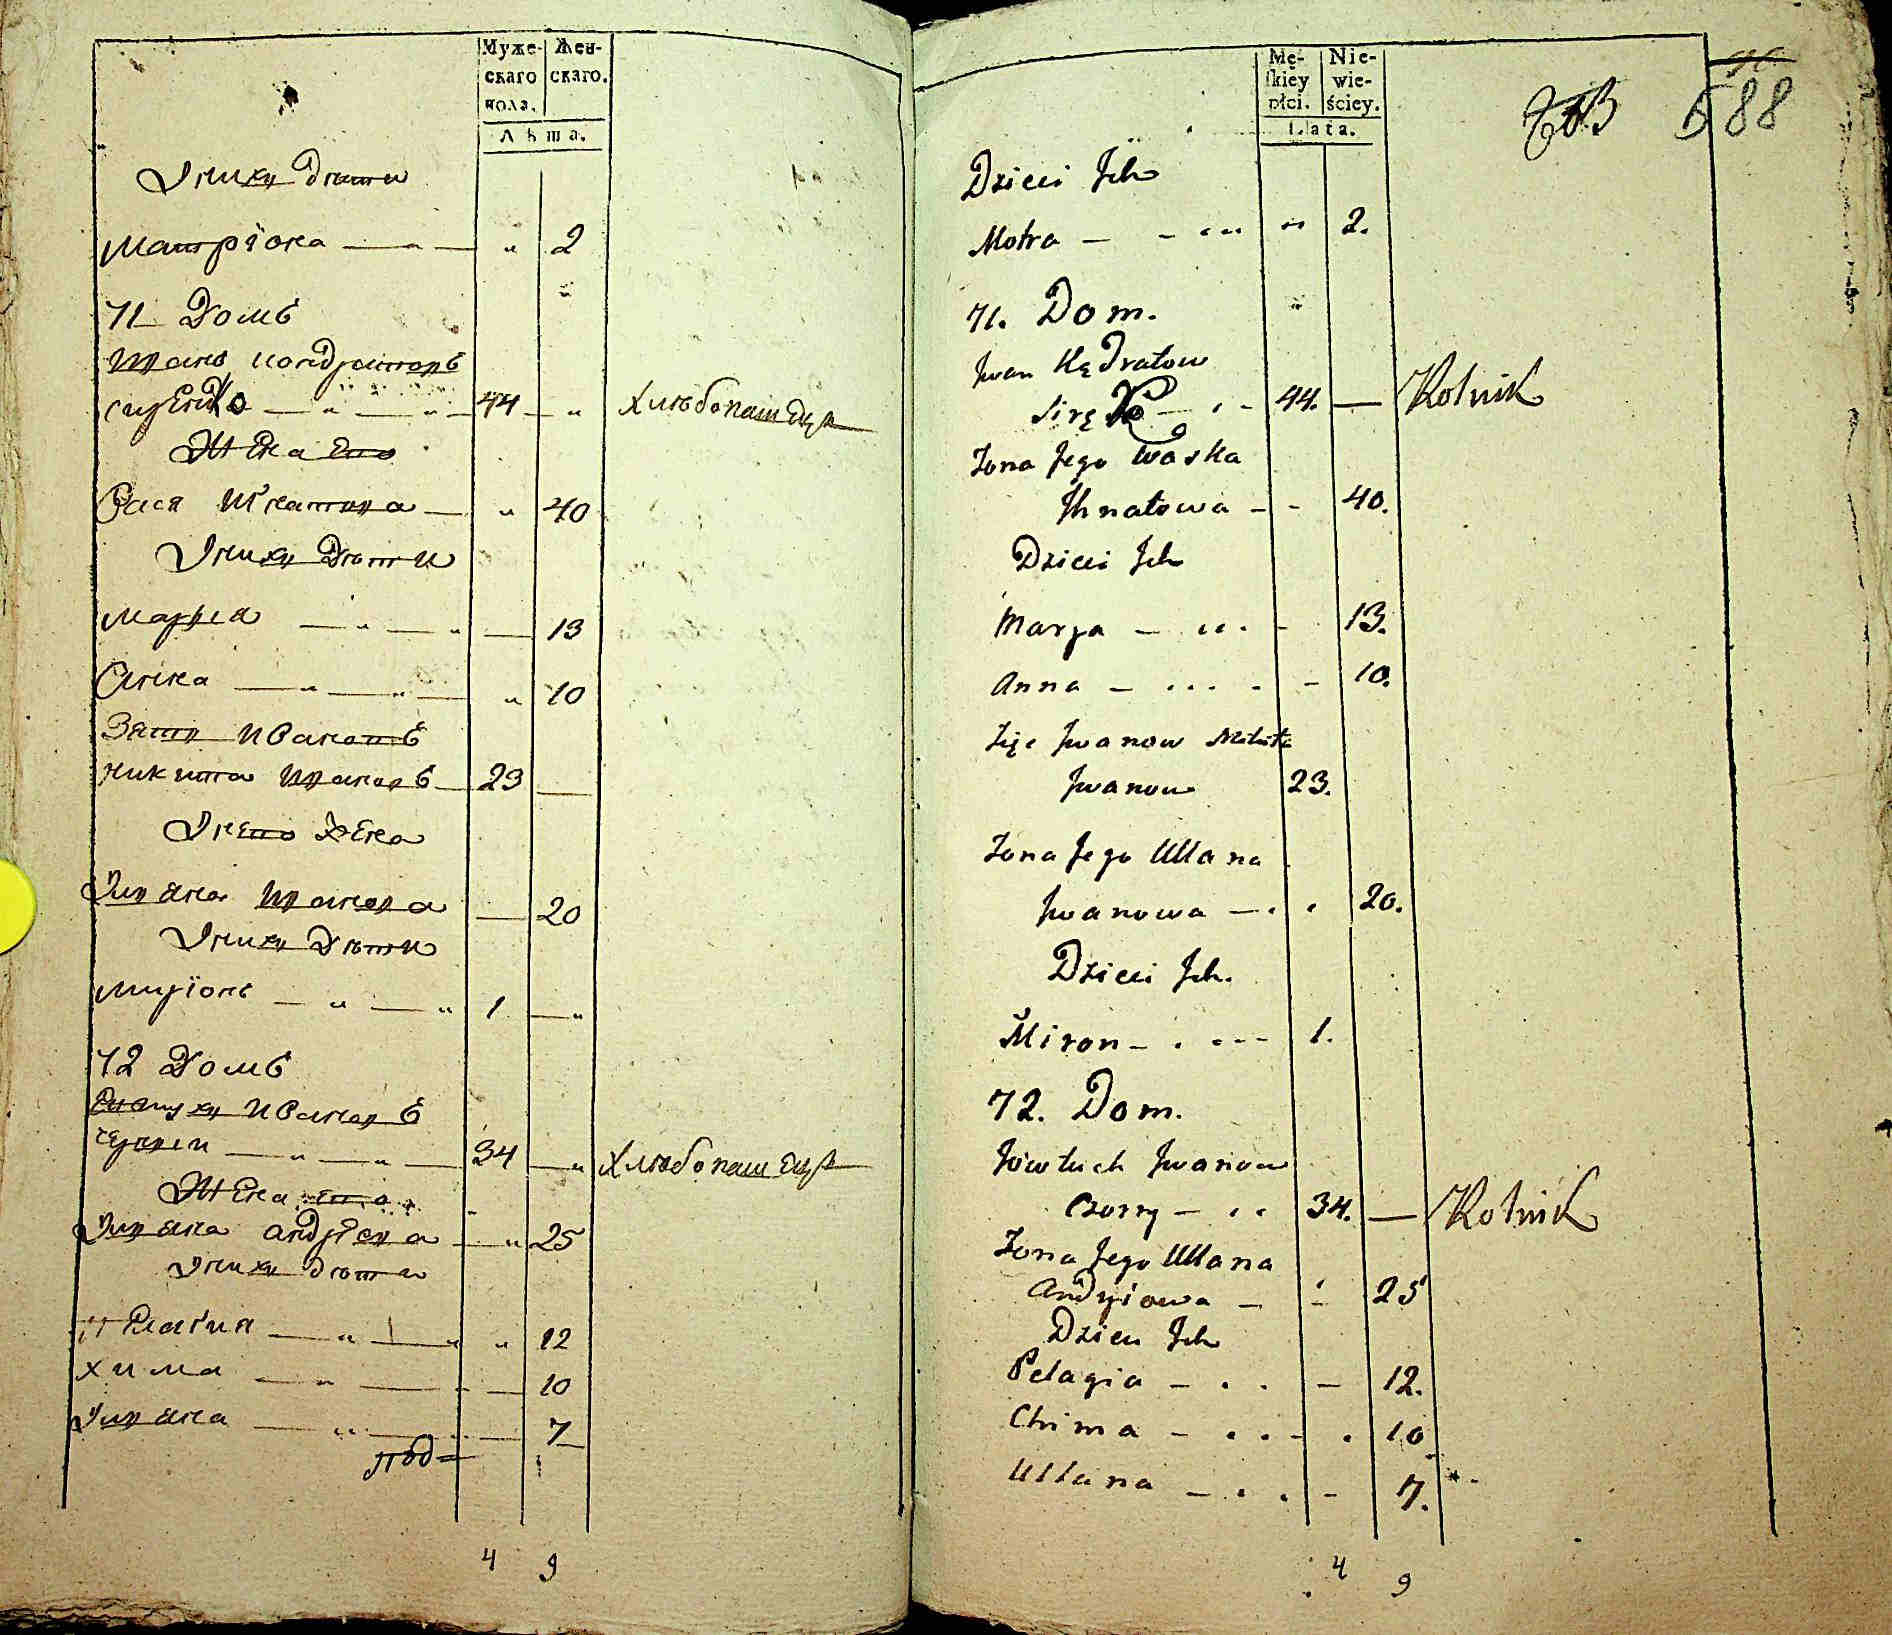 Муже-
скаго
пола.
Жен-
скаго.
Лѣта.
Онихъ Дѣти
Матріона — „ — „ 2
71 Домъ
Иванъ Кондратовъ
сиренко — „ — „ — 44 — „ Хлѣбопашецъ
Жена Его
Вася Игнатова — „ 40
Онихъ Дѣти
Марья — „ — „ — 13
Анна — „ — „ — „ 10
Зять Ивановъ
Никита Ивановъ — 23 —
Онаго Жена
Уляна Иванова — 20
Онихъ Дѣти
Миронъ — „ — „ 1 — „
72 Домъ
Евтухъ Ивановъ
Чорни — „ — „ — 34 — „ Хлѣбопашецъ
Жена его
Уляна Андрѣева — „ 25
Онихъ Дѣти
Пелагия — „ — „ „ 12
Хима — „ — - — 10
Уляна — „ — — 7
4 9
Mę-
skiey
płci.
Nie-
wie-
ściey.
Lata.
588
Dzieci Ich
Motra — - „ 2.
71. Dom.
Iwan Kądratow
Siręko — 44. — Rolnik
Żona Jego Waska
Ihnatowa - - 40.
Dzieci Ich
Marya — - 13.
Anna — - 10.
Zięć Iwanow Mikita
Iwanow 23.
Żona Jego Ullana
Iwanowa — 20.
Dzieci Ich.
Miron — 1.
72. Dom.
Jowtuch Iwanow
Czorny — 34. — Rolnik
Żona Jego Ullana
Andryiowa — - 25
Dzieci Ich
Pelagia — - 12.
Chima — 10
Ullana — - 7.
4 9